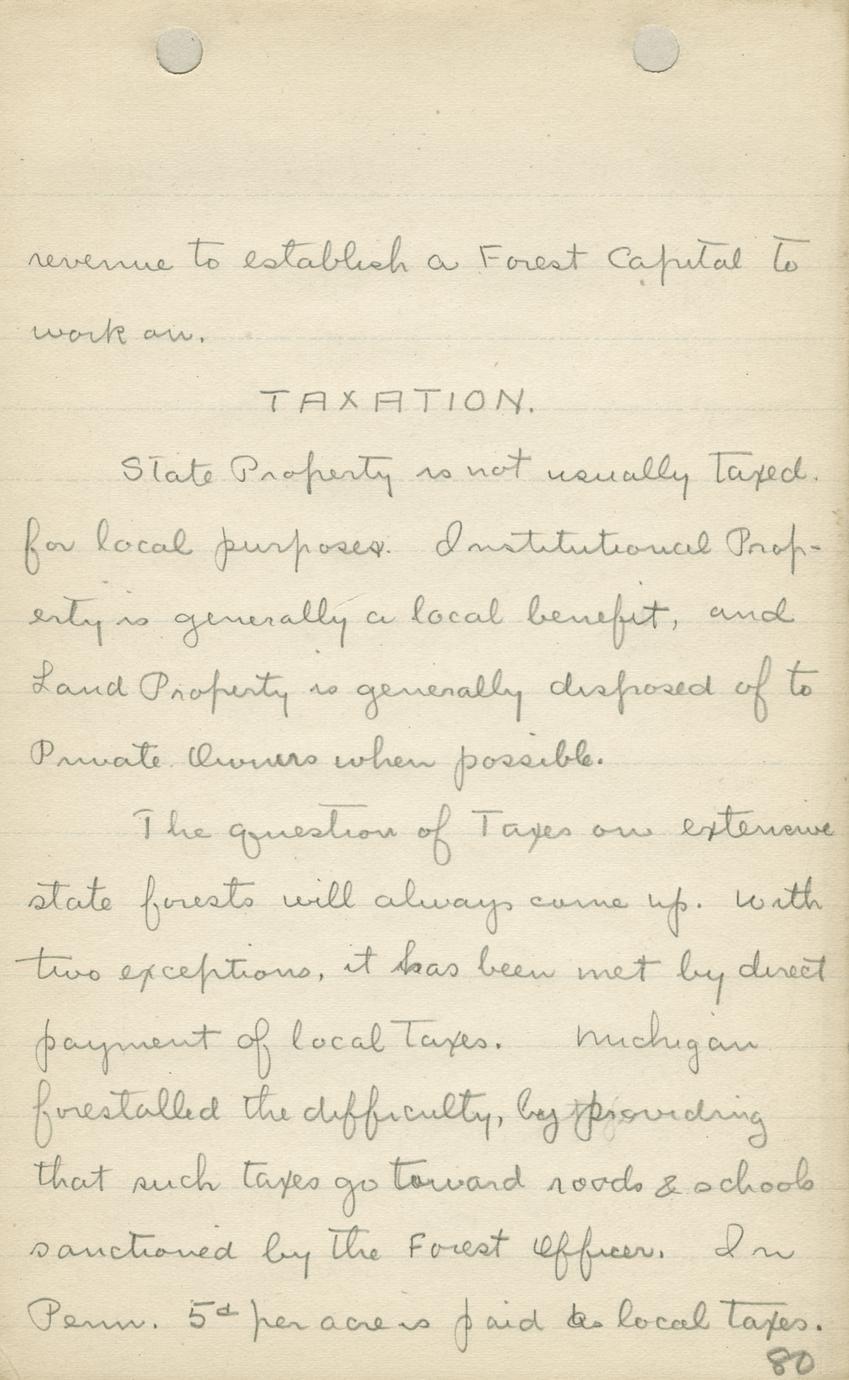 revenue to establish a Forest Capital to
work on.
TAXATION.
State Property is not usually taxed.
for local purposes. Institutional Prop-
erty is generally a local benefit, and
Land Property is generally disposed of to
Private Owners when possible.
The question of Taxes on extensive
state forests will always come up. With
two exceptions, it has been met by direct
payment of local Taxes. Michigan
forestalled the difficulty, by providing
that such taxes go toward roads & schools
sanctioned by the Forest Officer. In
Penn. 5¢ per acre is paid as local taxes.
80